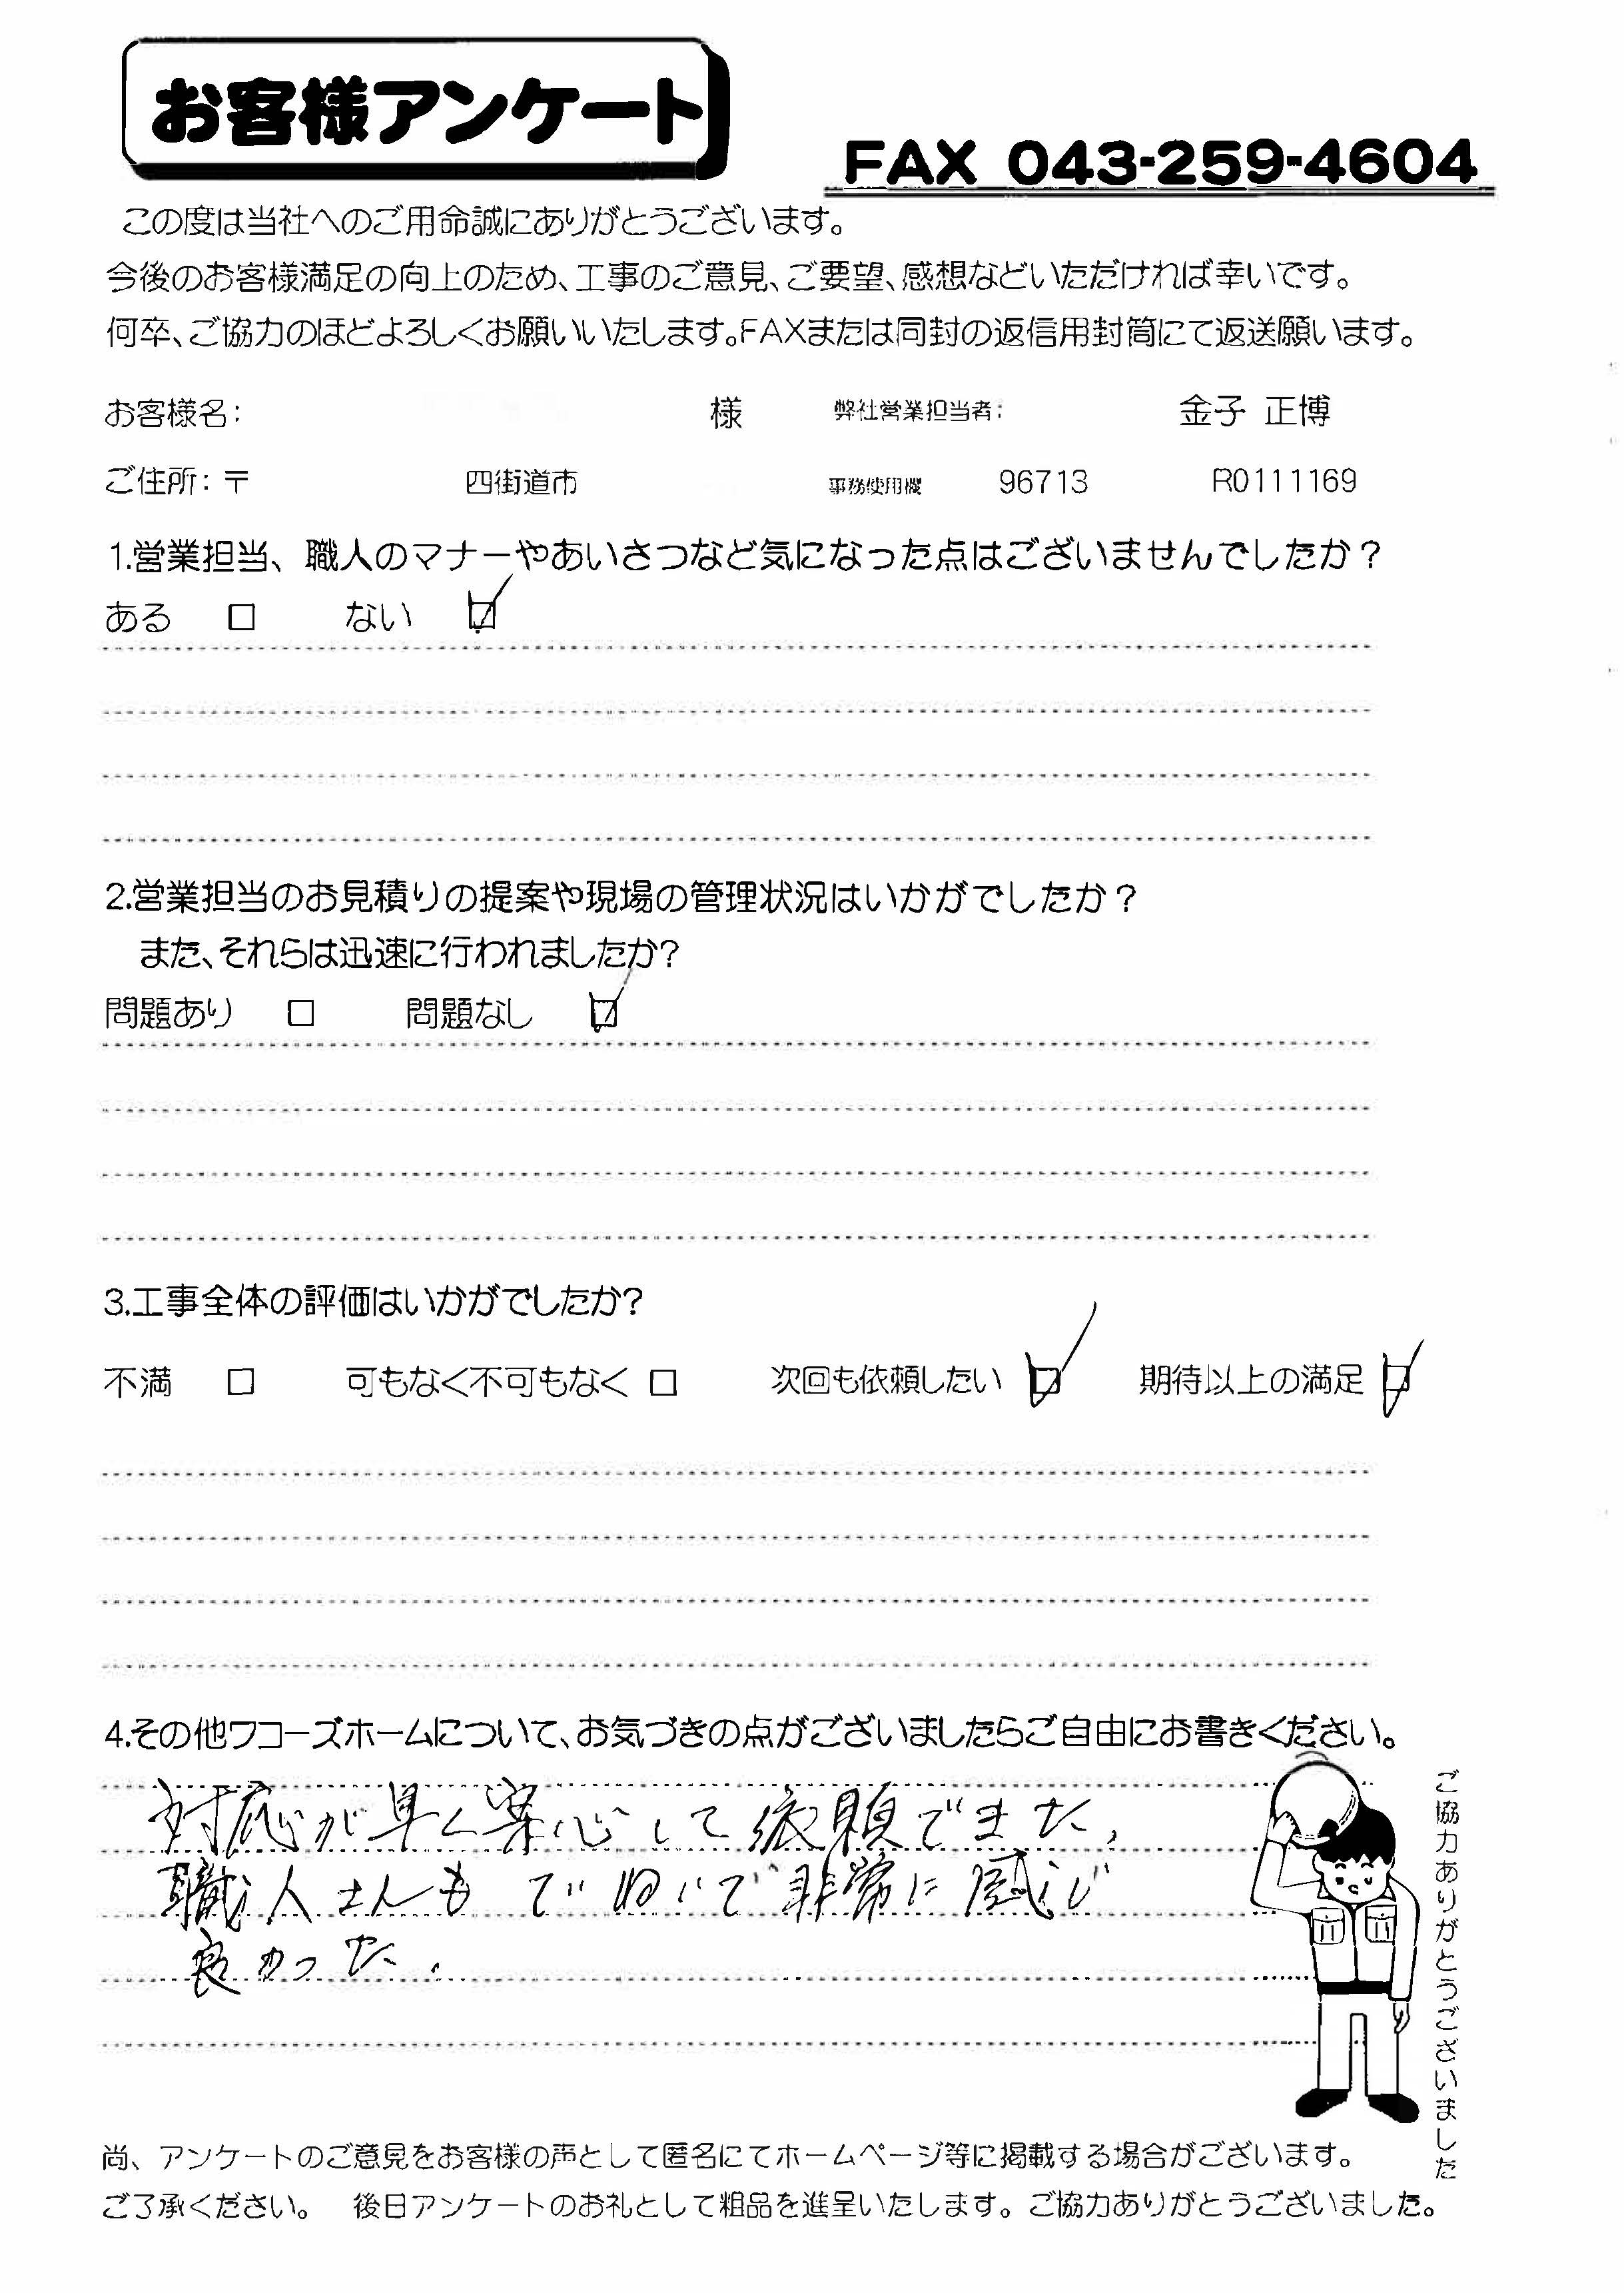 お客様アンケート
FAX 043-259-4604
この度は当社へのご用命誠にありがとうございます。
今後のお客様満足の向上のため、工事のご意見、ご要望、感想などいただければ幸いです。
何卒、ご協力のほどよろしくお願いいたします。FAXまたは同封の返信用封筒にて返送願います。
お客様名: 様 弊社営業担当者: 金子 正博
ご住所:〒 四街道市 事務使用欄 96713 R0111169
1.営業担当、職人のマナーやあいさつなど気になった点はございませんでしたか?
ある □ ない ☑
2.営業担当のお見積りの提案や現場の管理状況はいかがでしたか?
また、それらは迅速に行われましたか?
問題あり □ 問題なし ☑
3.工事全体の評価はいかがでしたか?
不満 □ 可もなく不可もなく □ 次回も依頼したい ☑ 期待以上の満足 ☑
4.その他ワコーズホームについて、お気づきの点がございましたらご自由にお書きください。
対応が早く安心して依頼できた。
職人さんもていねいで非常に感じ
良かった。
ご協力ありがとうございました
尚、アンケートのご意見をお客様の声として匿名にてホームページ等に掲載する場合がございます。
ご了承ください。 後日アンケートのお礼として粗品を進呈いたします。ご協力ありがとうございました。